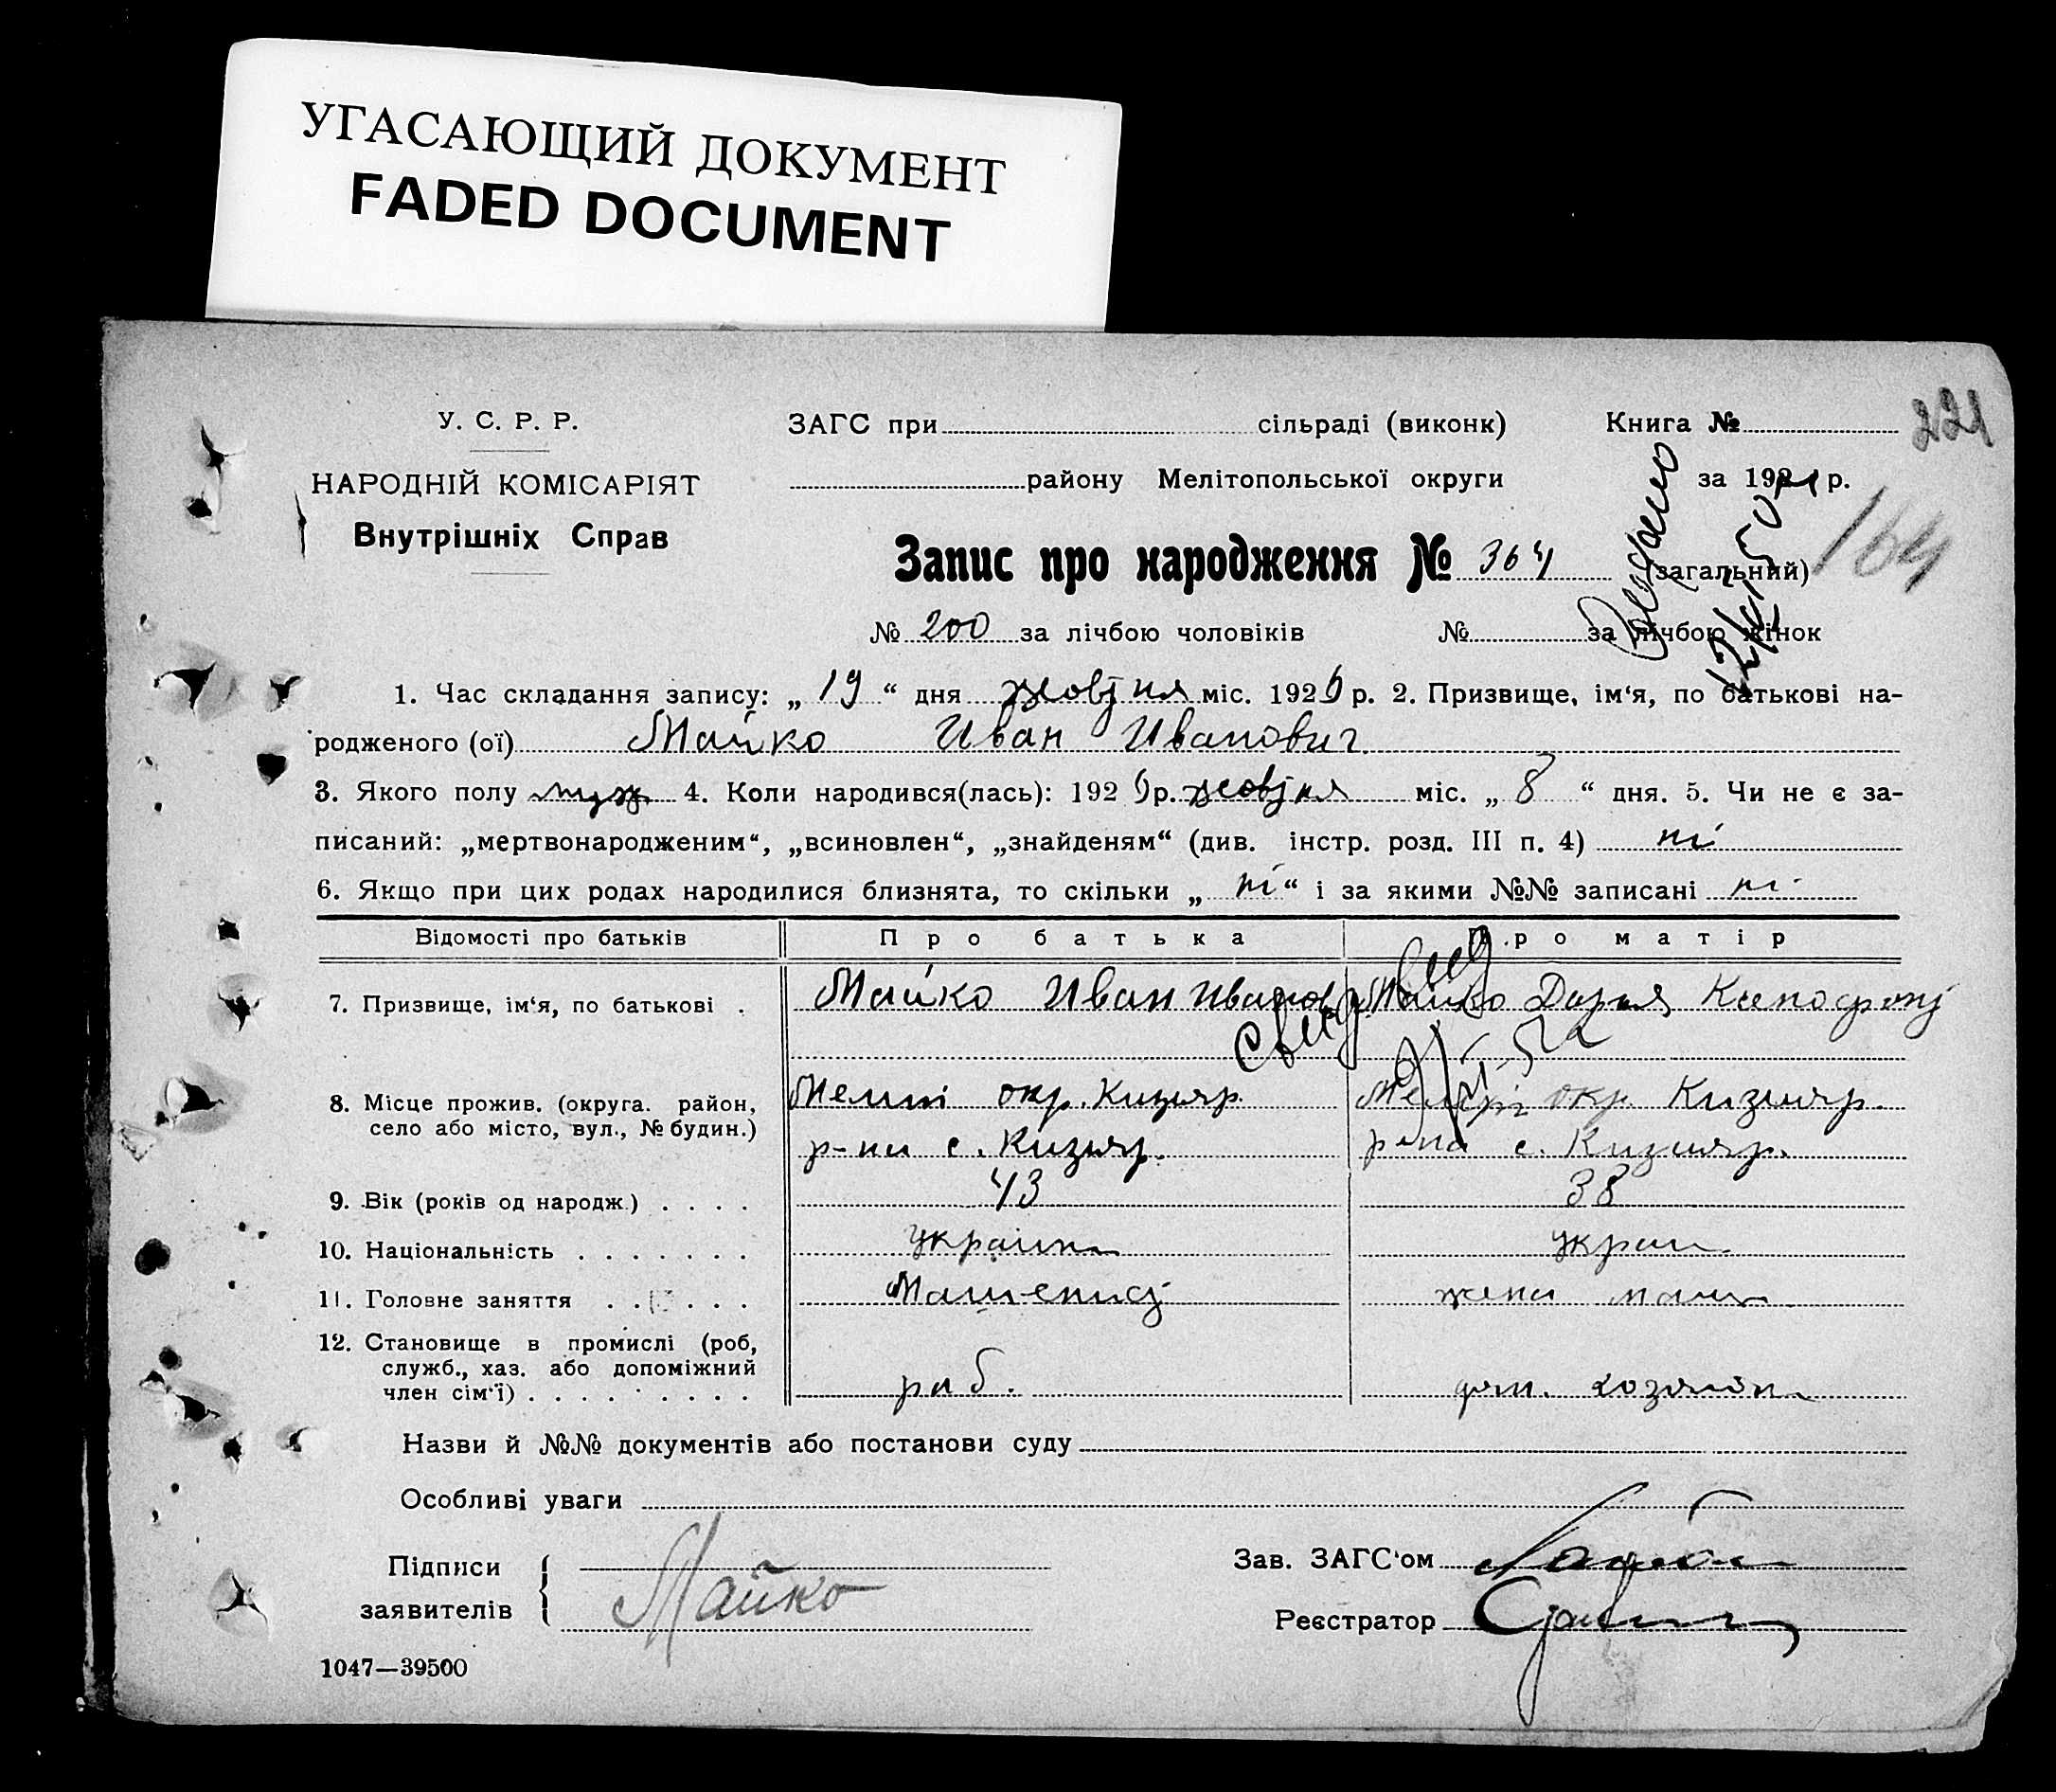 УГАСАЮЩИЙ ДОКУМЕНТ
FADED DOCUMENT
У. С. Р. Р.
НАРОДНІЙ КОМІСАРІЯТ
Внутрішніх Справ
ЗАГС при сільраді (виконк)
району Мелітопольської округи
Книга № 221
за 192 р.
164
Запис про народження № 364 (загальний)
№ 200 за лічбою чоловіків № за лічбою жінок
1. Час складання запису: „ 19 “ дня жовтня міс. 1926 р. 2. Призвище, ім‘я, по батькові на-
родженого (ої) Майко Иван Иванович
3. Якого полу муж 4. Коли народився(лась): 1926 р. жовтня міс. „ 8 “ дня. 5. Чи не є за-
писаний: „мертвонародженим“, „всиновлен“, „знайденям“ (див. інстр. розд. III п. 4) ні
6. Якщо при цих родах народилися близнята, то скільки „ ні “ і за якими №№ записані ні
Відомості про батьків Про батька Про матір
7. Призвище, ім‘я, по батькові . Майко Иван Иванов Майко Дарья
8. Місце прожив. (округа. район, село або місто, вул., № будин.) Меліт окр. Кизияр. р-на с. Кизияр. Меліт окр. Кизияр. р-на с. Кизияр.
9. Вік (років од народж.) . . . . 43 38
10. Національність . . . . . . . украин украин
11. Головне заняття . . . . . Машенист жена маш
12. Становище в промислі (роб, служб., хаз. або допоміжний член сім‘ї) . . . . . . . . . раб. дом. хозяйк
Назви й №№ документів або постанови суду
Особливі уваги
Підписи
заявителів Майко
Зав. ЗАГС‘ом
Реєстратор
1047—39500